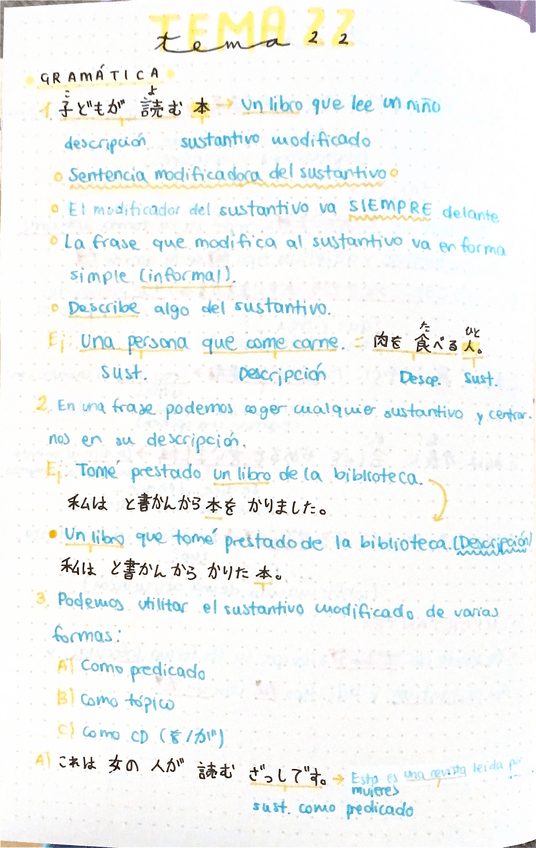 TEMA 22
tema 22
GRAMÁTICA
こ よ
1. 子どもが 読む 本 → Un libro que lee un niño
descripción sustantivo modificado
Sentencia modificadora del sustantivo
El modificador del sustantivo va SIEMPRE delante
La frase que modifica al sustantivo va en forma
simple (informal).
Describe algo del sustantivo.
た ひと
Ej: Una persona que come carne. = 肉を 食べる 人。
Sust. Descripción Descp. Sust.
2. En una frase podemos coger cualquier sustantivo y centrar-
nos en su descripción.
Ej: Tomé prestado un libro de la biblioteca.
私は と書かんから 本を かりました。
Un libro que tomé prestado de la biblioteca. (Descripción)
私は と書かん から かりた 本。
3. Podemos utilitar el sustantivo modificado de varias
formas:
A) Como predicado
B) Como tópico
C) Como CD (を/が)
A) これは 女の 人が 読む ざっしです。 → Esta es una revista leída por
mujeres
sust. como predicado